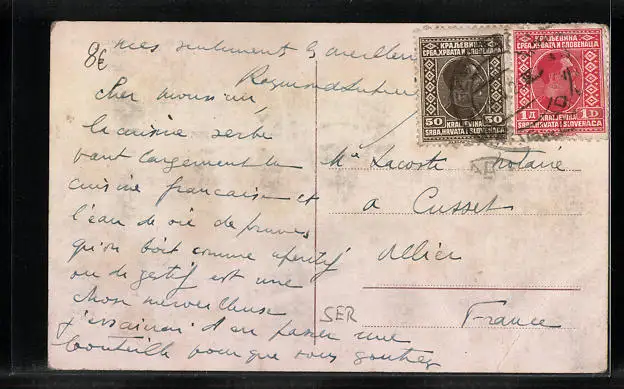 8€
mes sentiments les meilleurs
Raymond
Cher monsieur,
la cuisine serbe
vaut largement la
cuisine française et
l'eau de vie de prunes
qu'on boit comme aperitif
ou digestif est une
chose merveilleuse
j'essaierai d'en passer une
bouteille pour que vous goutiez
КРАЉЕВИНА
СРБА, ХРВАТА И СЛОВЕНАЦА
50 50
KRALJEVINA
SRBA, HRVATA I SLOVENACA
КРАЉЕВИНА
СРБА, ХРВАТА И СЛОВЕНАЦА
1Д 1D
KRALJEVINA
SRBA, HRVATA I SLOVENACA
Me Lacoste notaire
a Cusset
Allier
France
SER